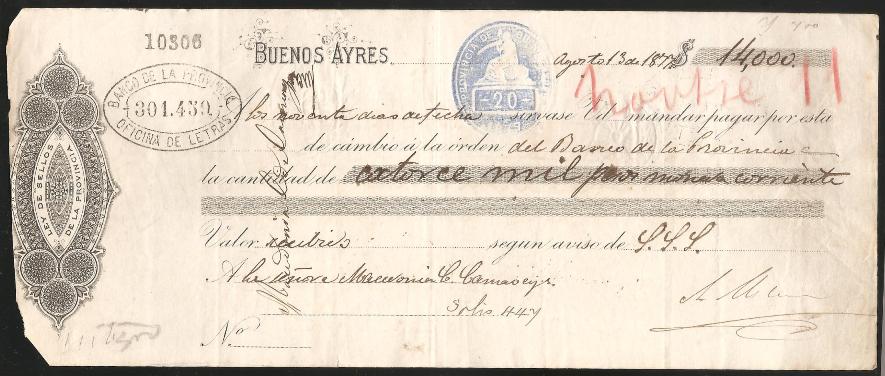 10306
BUENOS AYRES
Agosto 13 de 187
$ 14,000.
BANCO DE LA PROVINCIA
301.430
OFICINA DE LETRAS
PROVINCIA DE
20
11
LEY DE SELLOS
DE LA PROVINCIA
A los noventa dias de fecha sirvase Vd mandar pagar por esta
de cámbio á la órden del Banco de la Provincia
la cantidad de catorce mil moneda corriente
Valor segun aviso de S.S.S.
A la
Solis 447
Nº